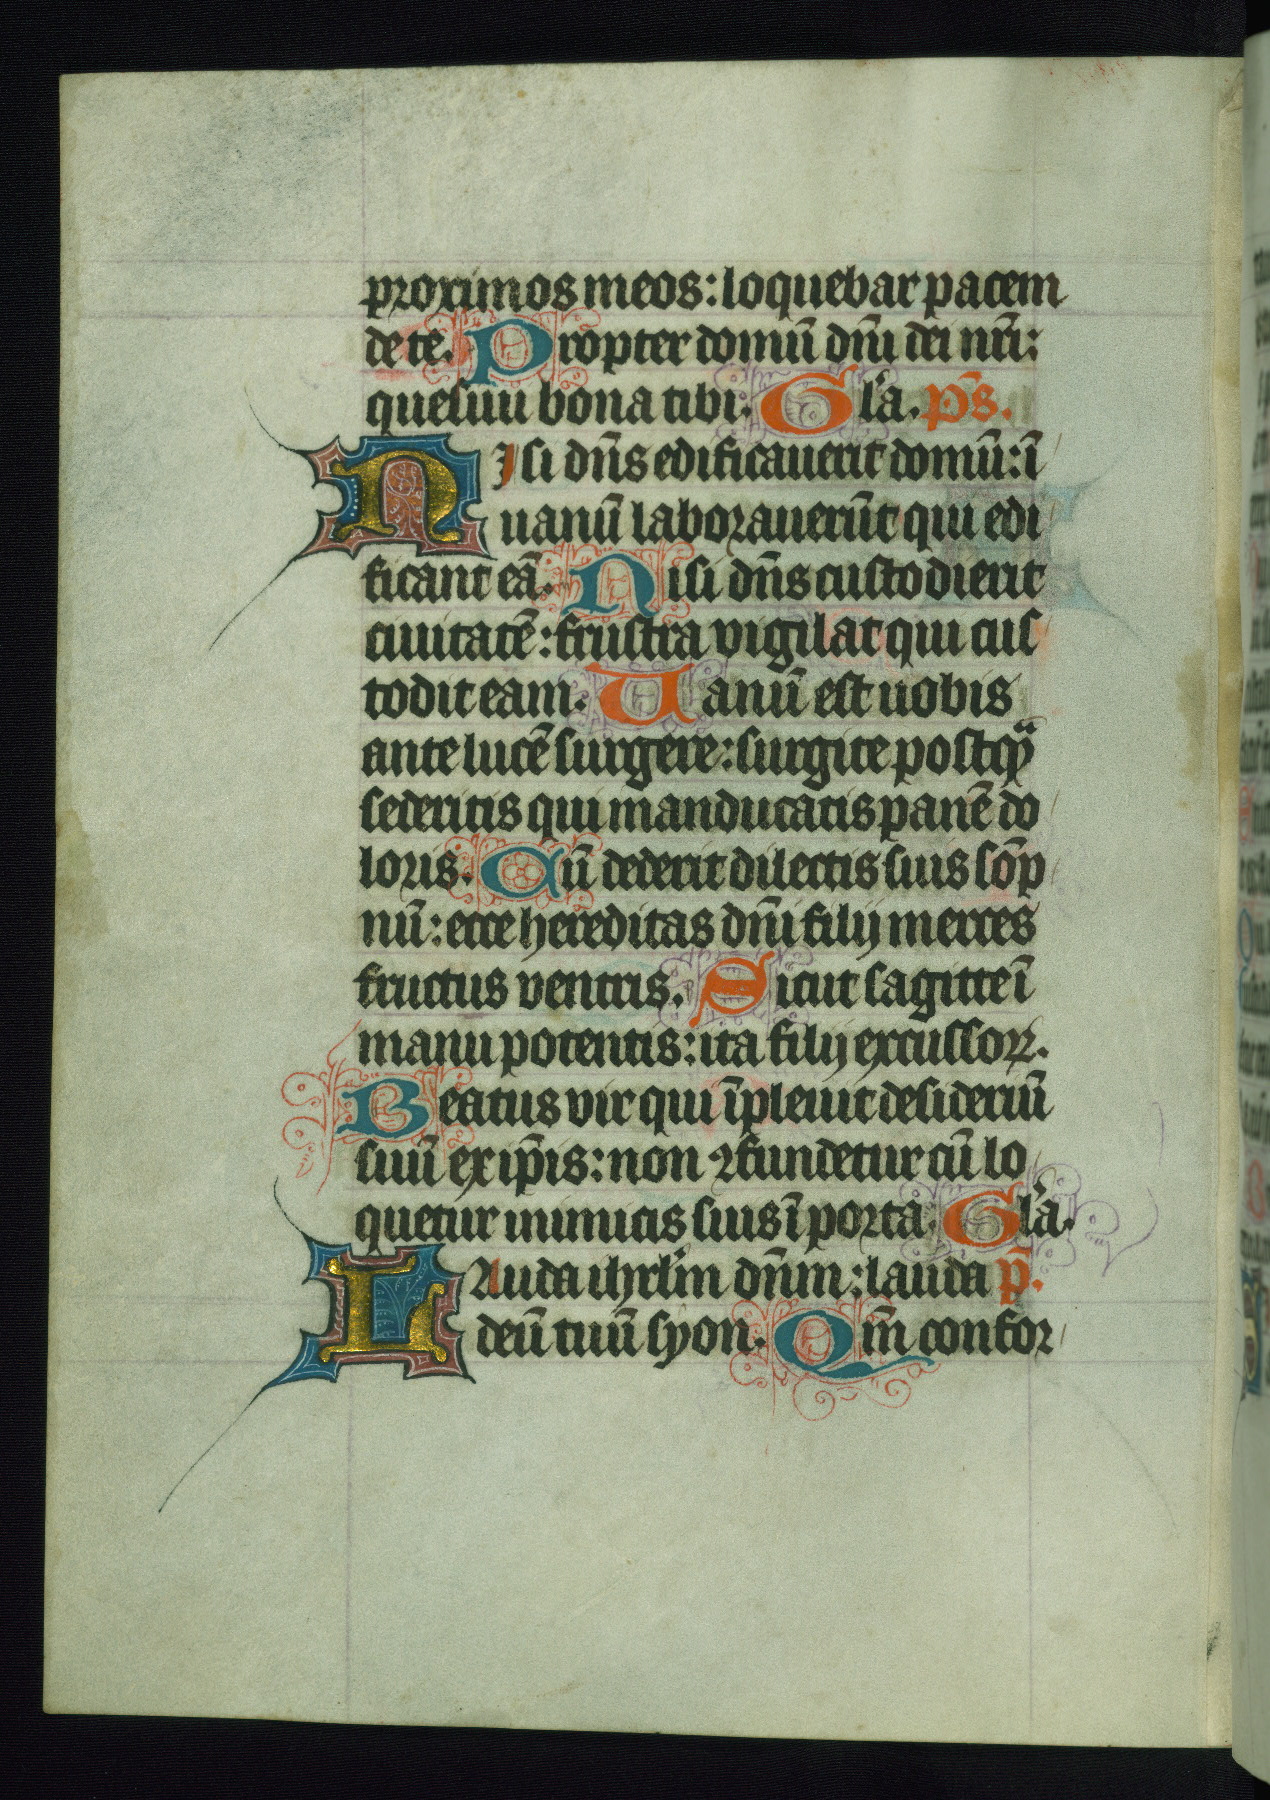 proximos meos: loquebar pacem
de te. Propter domū dn̄i dei nr̄i:
quesiui bona tibi. Gl'a. p̄s.
Nisi dn̄s edificauerit domū: ī
uanū laborauerūt qui edi
ficant eā. Nisi dn̄s custodierit
ciuitatē: frustra vigilat qui cus
todit eam. Uanū est uobis
ante lucē surgere: surgite postqᵃ̄
sederitis qui manducatis panē do
loris. Cū dederit dilectis suis sōp
nū: ecce hereditas dn̄i filij merces
fructus ventris. Sicut sagitte ī
manu potentis: ita filij excussoꝝ.
Beatus vir qui īpleuit desideriū
suū ex ip̄is: non ꝯfundetur cū lo
quetur inimicis suis ī porta. Gl'a.
Lauda ihrl'm dn̄m: lauda p̄.
deū tuū syon. Qm̄ confor